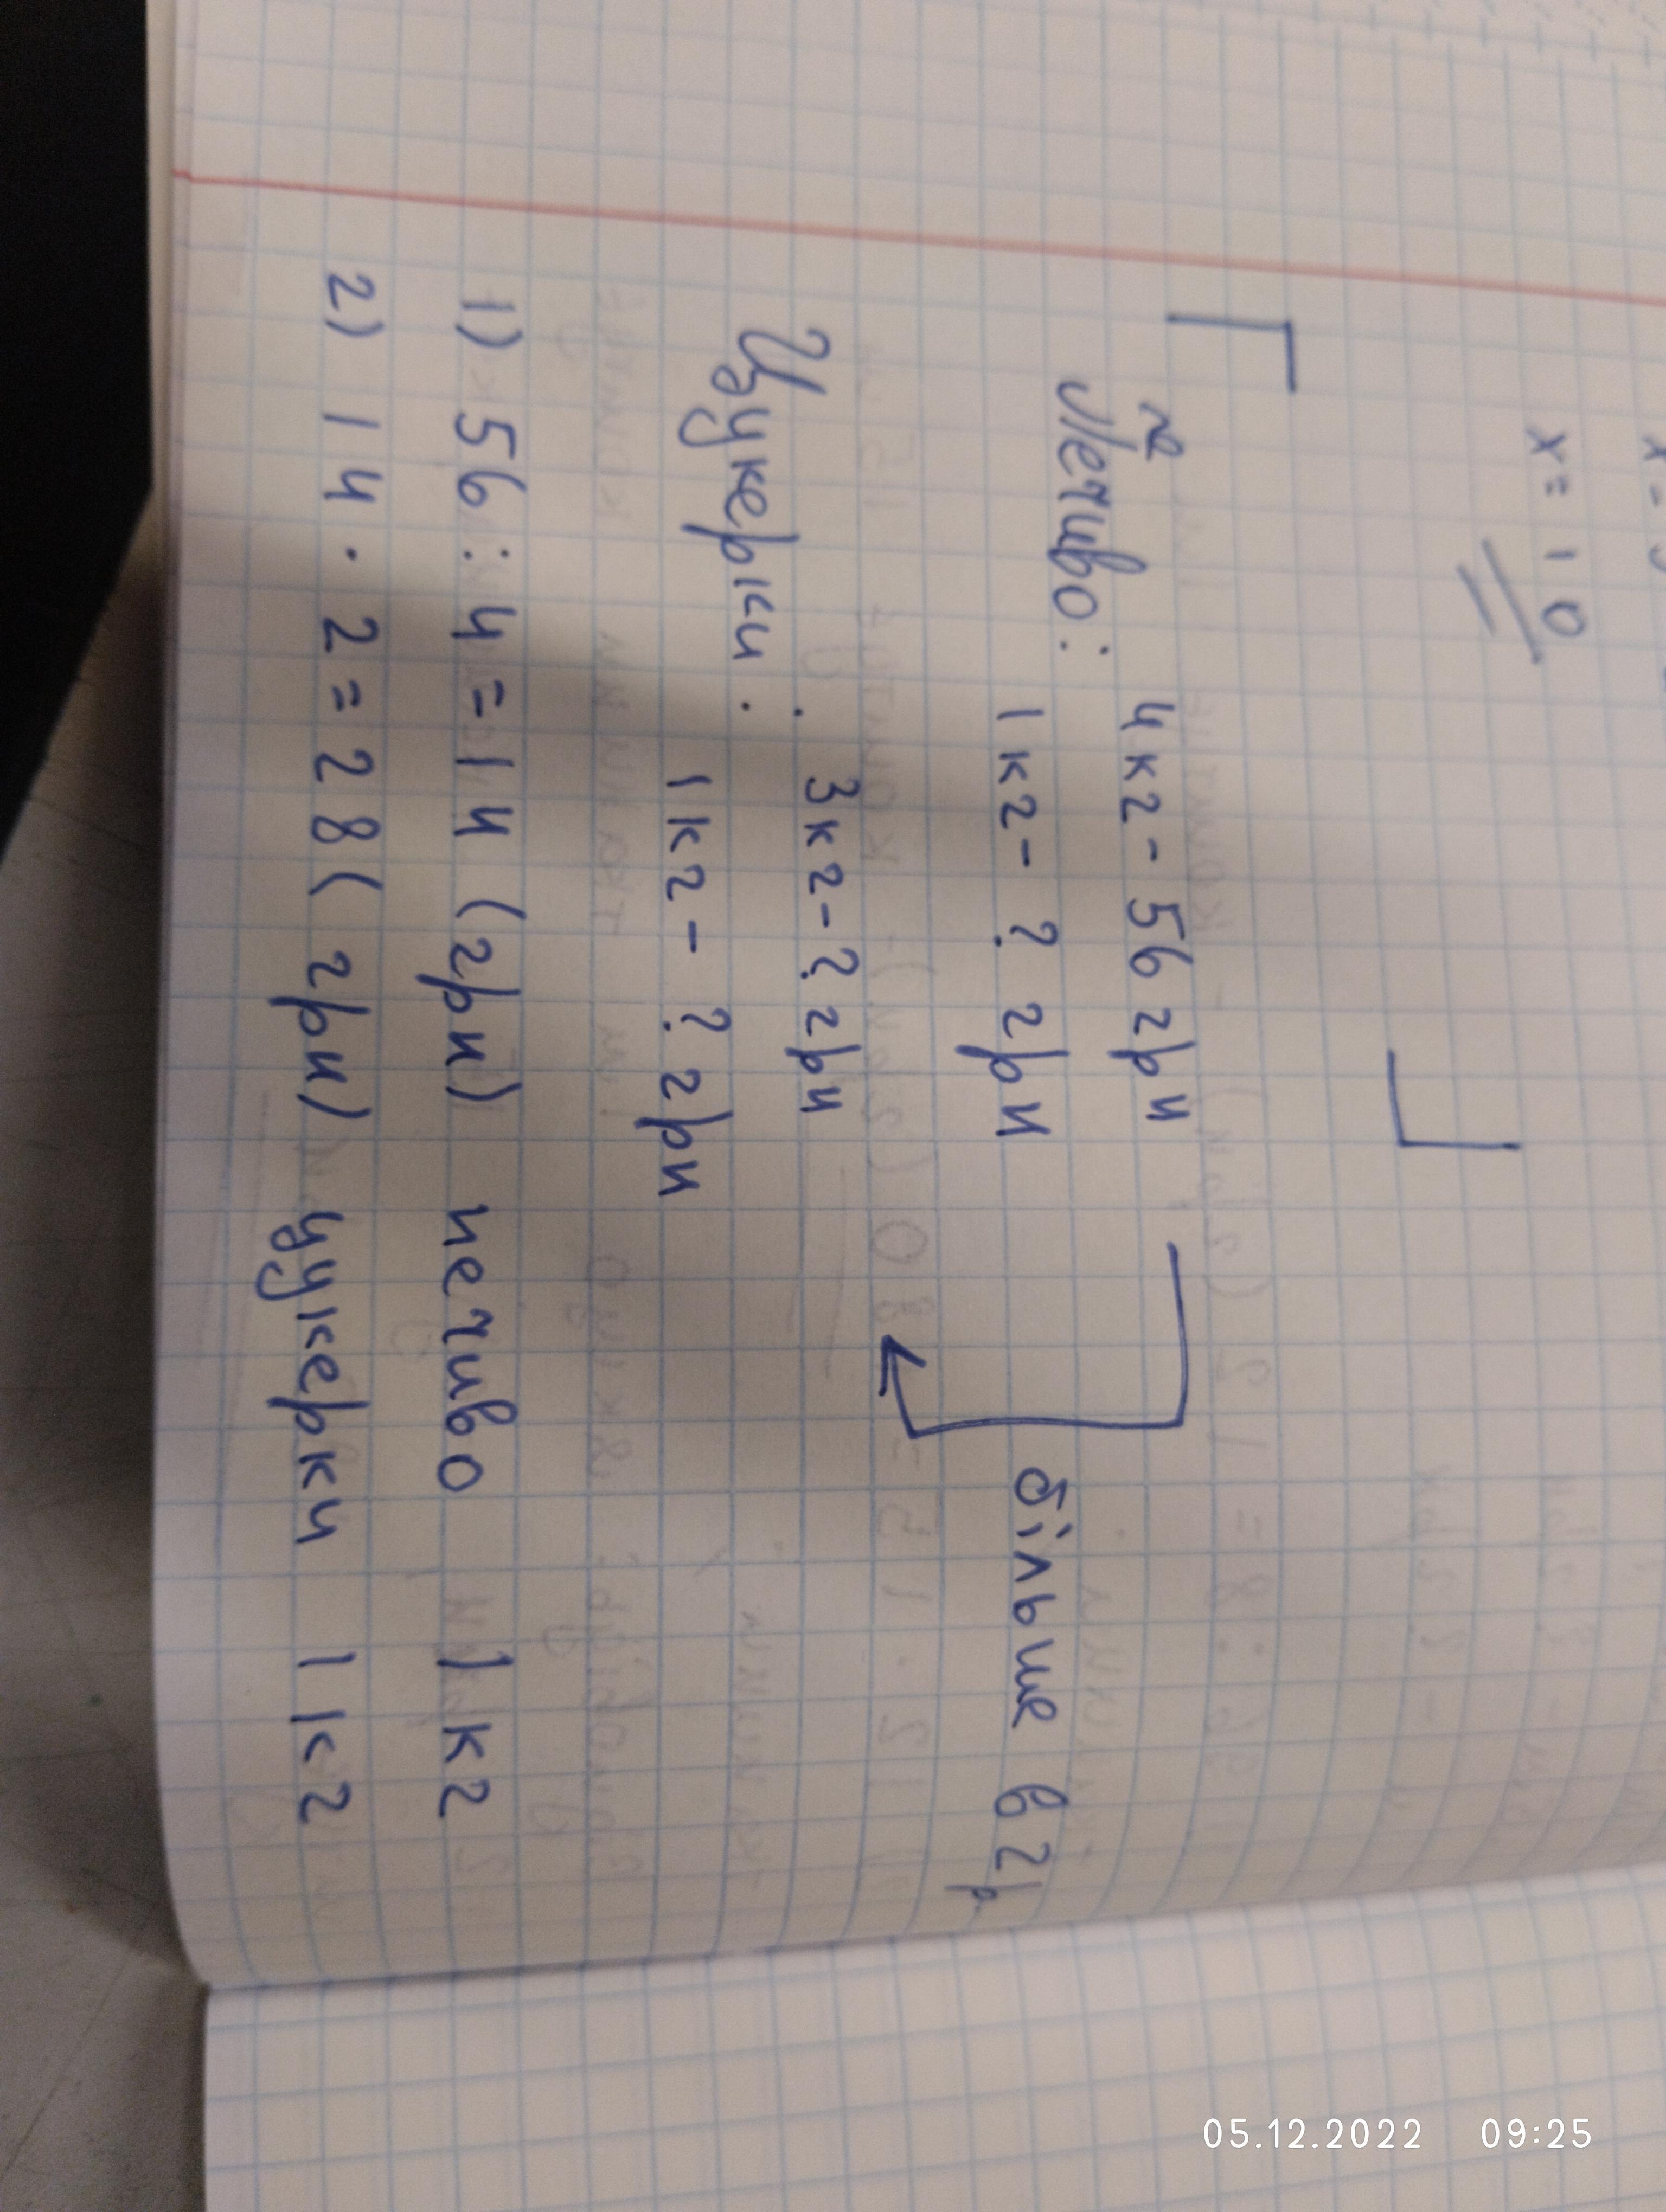 x = 10
Печиво: 4 кг - 56 грн
1 кг - ? грн
більше в 2 р.
Цукерки: 3 кг - ? грн
1 кг - ? грн
1) 56 : 4 = 14 (грн) печиво 1 кг
2) 14 · 2 = 28 (грн) цукерки 1 кг
05.12.2022 09:25